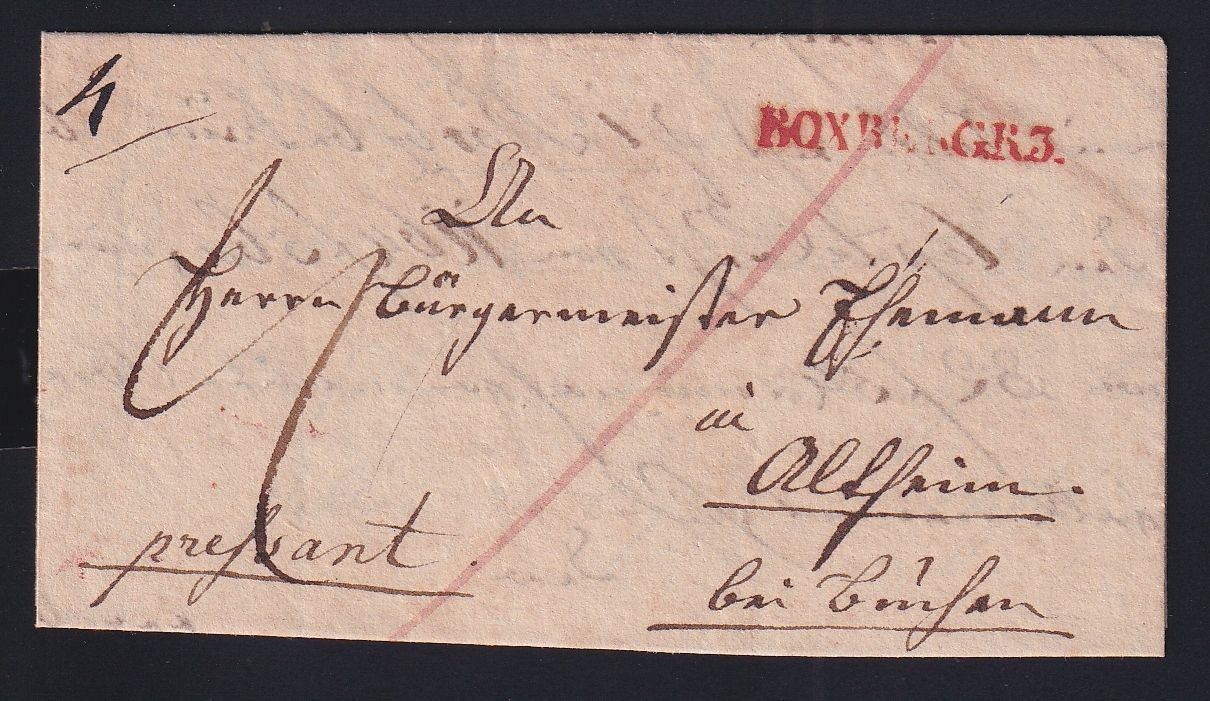 4
BOXBERG.R3.
An
Herrn Bürgermeister
in
Altheim.
bei Buchen
pressant.